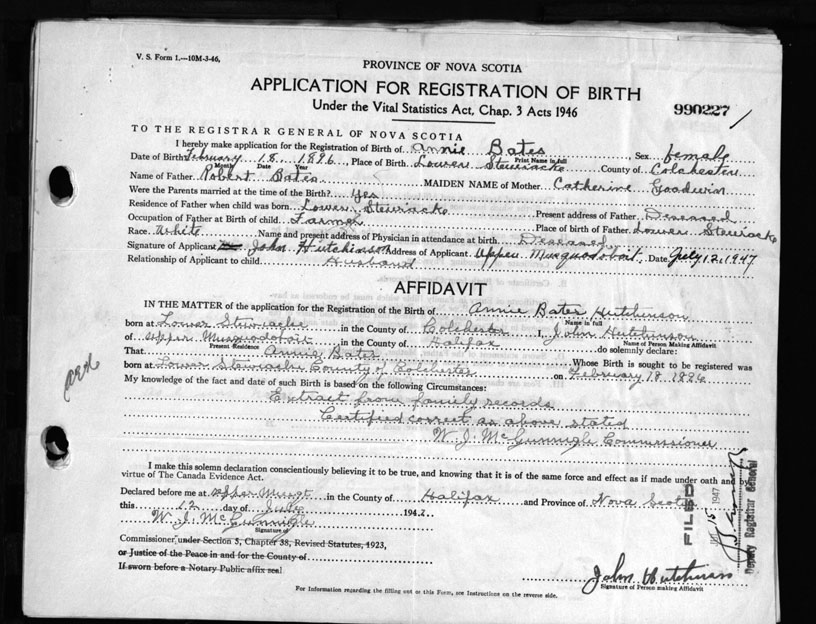 V. S. Form 1.—10M-3-46.
PROVINCE OF NOVA SCOTIA
APPLICATION FOR REGISTRATION OF BIRTH
Under the Vital Statistics Act, Chap. 3 Acts 1946
990227 /
TO THE REGISTRAR GENERAL OF NOVA SCOTIA
I hereby make application for the Registration of Birth of Annie Bates, Sex female
Print Name in full
Date of Birth February 18 1896, Place of Birth Lower Stewiacke County of Colchester
Month Date Year
Name of Father Robert Bates MAIDEN NAME of Mother Catherine Goodwin
Were the Parents married at the time of the Birth? Yes
Residence of Father when child was born Lower Stewiacke Present address of Father Deseased
Occupation of Father at Birth of child Farmer Place of birth of Father Lower Stewiacke
Race White Name and present address of Physician in attendance at birth Deseased
Signature of Applicant John Hutchinson Address of Applicant Upper Musquodoboit, Date July 12, 1947
Relationship of Applicant to child Husband
AFFIDAVIT
IN THE MATTER of the application for the Registration of Birth of Annie Bates Hutchinson
Name in full
born at Lower Stewiacke in the County of Colchester I, John Hutchinson
Name of Person Making Affidavit
of Upper Musquodoboit in the County of Halifax do solemnly declare:
Present Residence
That Annie Bates Whose Birth is sought to be registered was
born at Lower Stewiacke County of Colchester on February 18 1896
My knowledge of the fact and date of such Birth is based on the following Circumstances:
Extract from family records
Certified correct as above stated
W. J. McGunnigle Commissioner
I make this solemn declaration conscientiously believing it to be true, and knowing that it is of the same force and effect as if made under oath and by
virtue of The Canada Evidence Act.
Declared before me at Upper Musqt in the County of Halifax and Province of Nova Scotia
this 12 day of July 1947.
W. J. McGunnigle
Signature of
Commissioner, under Section 5, Chapter 38, Revised Statutes, 1923,
or Justice of the Peace in and for the County of
If sworn before a Notary Public affix seal
John Hutchinson
Signature of Person making Affidavit
For Information regarding the filling out of this Form, see Instructions on the reverse side.
FILED
15 1947
Deputy Registrar General